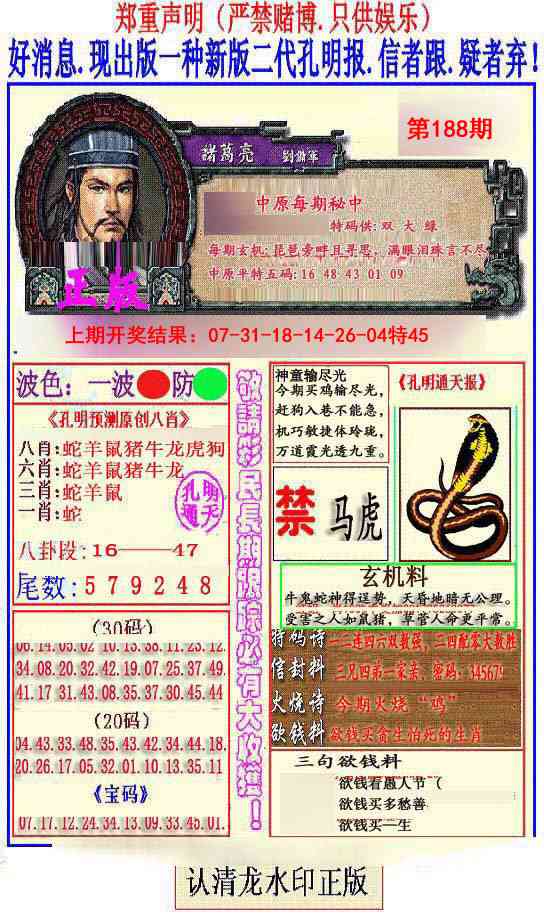 郑重声明（严禁赌博.只供娱乐）
好消息.现出版一种新版二代孔明报.信者跟.疑者弃！
第188期
諸葛亮 劉備軍
中原每期秘中
特码供:双 大 绿
每期玄机:琵琶旁畔且寻思，满眼泪珠言不尽
中原平特五码:16 48 43 01 09
正版
上期开奖结果：07-31-18-14-26-04特45
波色：一波 防
《孔明预测原创八肖》
八肖:蛇羊鼠猪牛龙虎狗
六肖:蛇羊鼠猪牛龙
三肖:蛇羊鼠
一肖:蛇
孔明
通天
八卦段:16——47
尾数:579248
(30码)
06.14.05.02 10.13.38.11.23.12.
34.08.20.32.42.19.07.25.37.49.
41.17.31.43.08.35.37.30.45.44
(20码)
04.43.33.48.35.43.42.34.44.18.
20.26.17.05.32.01.10.13.35.11
《宝码》
07.17.12.24.34.13.09.33.45.01.
敬請彩民長期跟踪必有大收獲！
神童输尽光
今期买鸡输尽光，
赶狗入巷不能急，
机巧敏捷体玲珑，
万道霞光透九重。
《孔明通天报》
禁 马虎
玄机料
牛鬼蛇神得逞势，天昏地暗无公理。
受害之人如鼠猪，草菅人命更平常。
特码诗 一二连四六双数强，三四配零大数胜
信封料 三兄四弟一家亲，密码：345679
火烧诗 今期火烧“鸡”
欲钱料 欲钱买贪生怕死的生肖
三句欲钱料
欲钱看愚人节（
欲钱买多愁善
欲钱买一生
认清龙水印正版